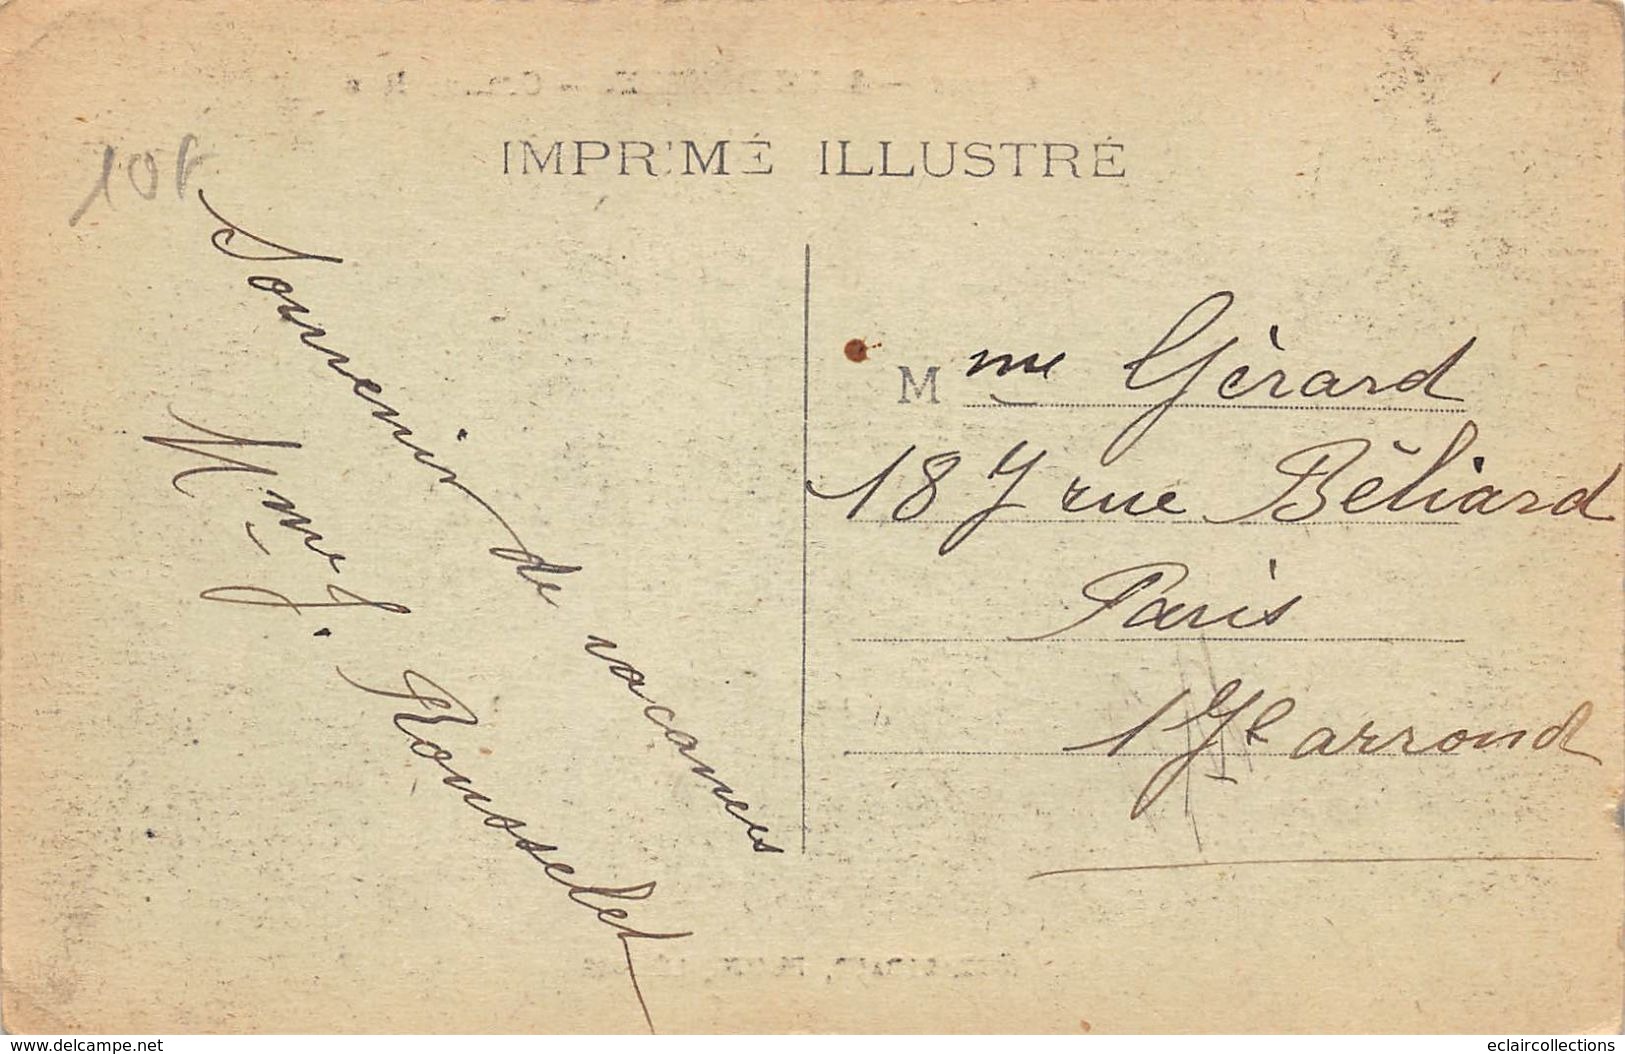 IMPRIMÉ ILLUSTRÉ
10f
Souvenir de vacances
Mme J. Rousselet
Mme Gérard
187 rue Béliard
Paris
17e arrond
www.delcampe.net
eclaircollections